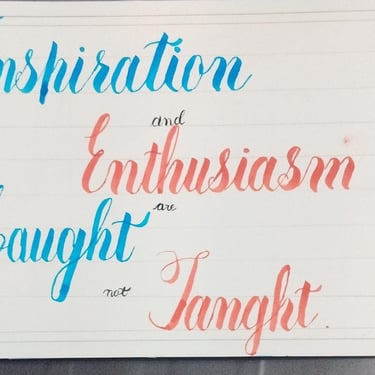 Inspiration
and
Enthusiasm
are
Caught
not
Taught.